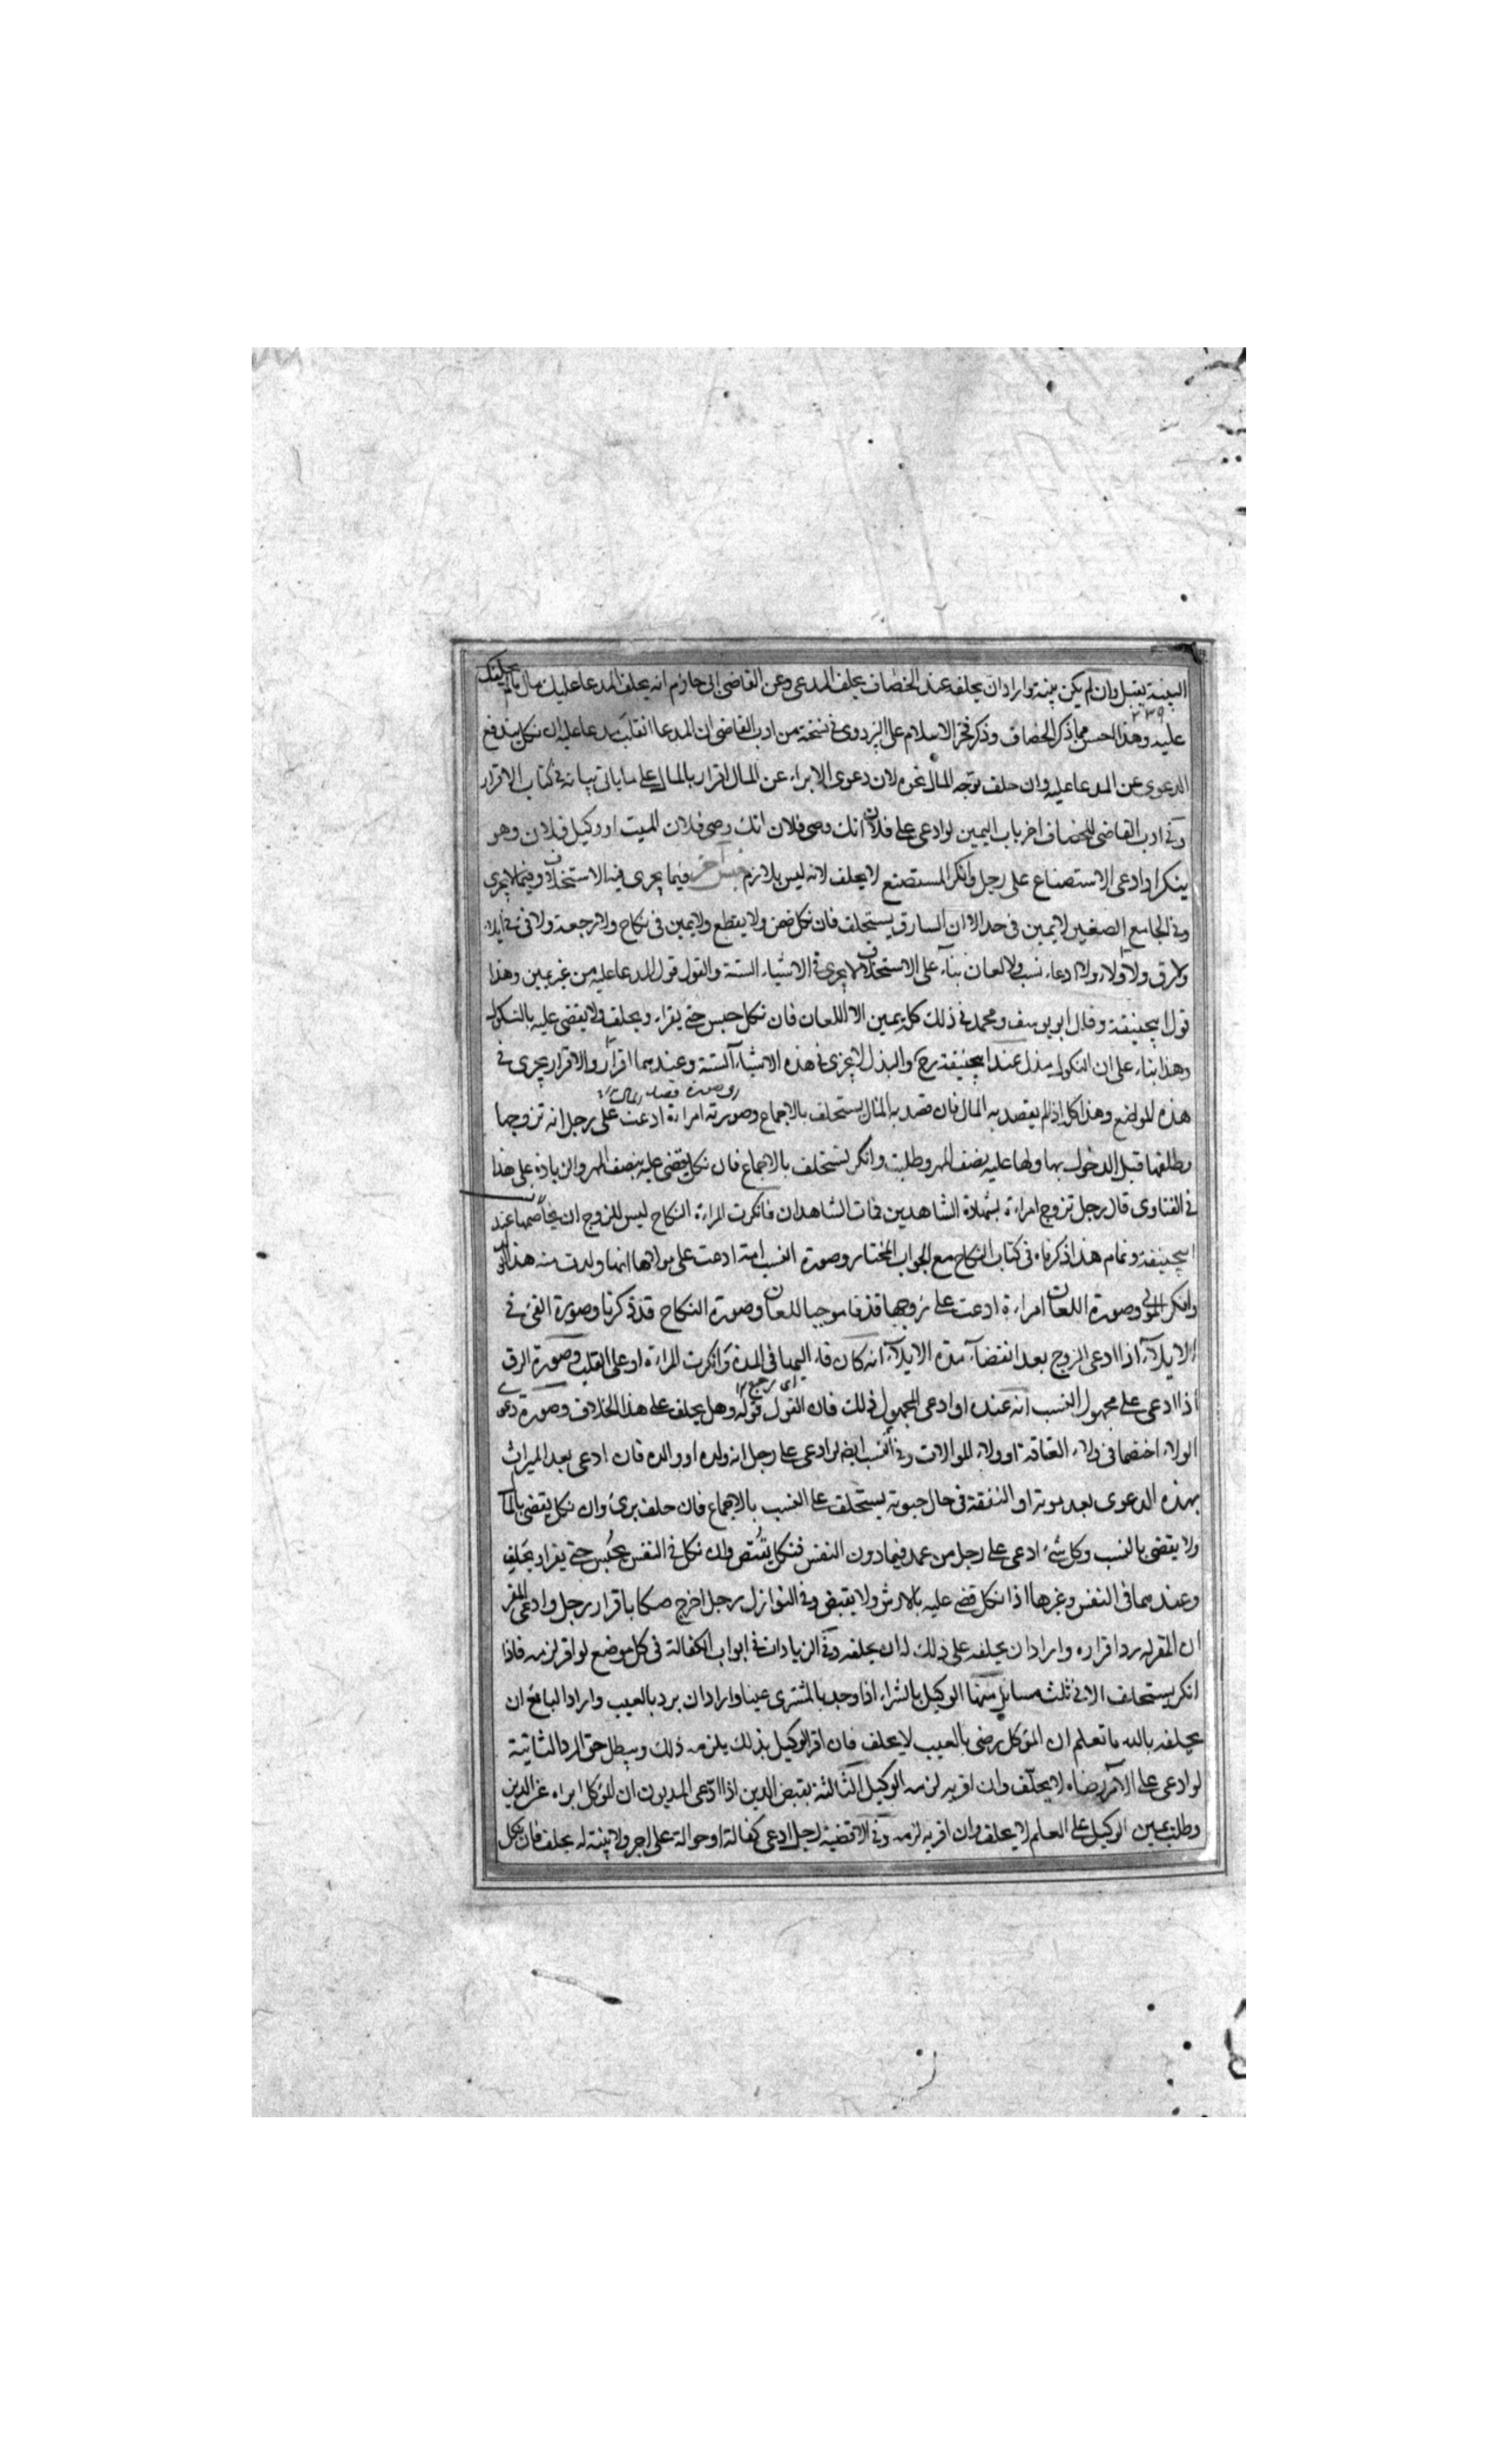 البينة يقبل وان لم يكن بينة وارادان يحلفه عند الخصاف يحلف المدعى وعن القاضى ابى حازم انه يحلف المدعا عليك مال
٢٣٩
عليه وهذا احسن مما ذكر الخصاف وذكر فخر الاسلام على البزدوى فى نسخة من ادب القاضى ان المدعا انقلب مدعا عليه ان نكل يندفع
الدعوى عن المدعا عليه وان حلف توجه المال نحوه لان دعوى الابراء عن المال اقرار بالمال على ما ياتى بيانه فى كتاب الاقرار
وفى ادب القاضى للخصاف اخر باب اليمين لو ادعى على فلان انك وصى فلان انك وصى فلان الميت او وكيل فلان وهو
ينكر او ادعى الاستصناع على رجل وانكر المستصنع لا يحلف لانه ليس بلازم جنس آخر فيما يجرى فيه الاستحلاف وفيما لا يجرى
وفى الجامع الصغير لا يمين فى حد الا ان السارق يستحلف فان نكل ضمن ولا يقطع ولا يمين فى نكاح ولا رجعة ولا فى فى ايلاء
ولا رق ولا ولاء ولا ادعاء نسب ولا لعان بناء على الاستحلاف لا يجرى فى الاشياء الستة والقول قول المدعا عليه من غير يمين وهذا
قول ابيحنيفة وقال ابو يوسف ومحمد فى ذلك كله يمين الا اللعان فان نكل حبس حتى يقراء ويحلف ولا يقضى عليه بالنكول
وهذا بناء على ان النكول بذل عند ابيحنيفة رح والبذل لا يجزى فى هذه الاشياء الستة وعندهما اقرار والاقرار يجرى فى
هذه المواضع وهذا كله اذا لم يقصد به المال فان قصد به المال يستحلف بالاجماع وصورته امراءة ادعت على رجل انه تزوجها
وطلقها قبل الدخول بها ولها عليه نصف المهر وطلبت وانكر يستحلف بالاجماع فان نكل يقضى عليه بنصف المهر والزيادة على هذا
فى الفتاوى قال رجل تزوج امراءة بشهادة الشاهدين فمات الشاهدان فانكرت المراءة النكاح ليس للزوج ان يخاصمها عند
ابيحنيفة وتمام هذا ذكرناه فى كتاب النكاح مع الجواب المختار وصورة النسب امة ادعت على مولاها انها ولدت منه هذا الولد
وانكر المولى وصورة اللعان امراءة ادعت على زوجها قذفا موجبا للعان وصورة النكاح قد ذكرنا وصورة الفئ فى
الايلآء اذا ادعى الزوج بعد انقضآء مدة الايلآء انه كان فاء اليها فى المدة وانكرت المراءة او على القلب وصورة الرق
اى رجع
اذا ادعى على مجهول النسب انه عبده او ادعى المجهول ذلك فان القول قوله وهل يحلف على هذا الخلاف وصورة دعوى
الولاء اختصما فى ولاء العتاقة او ولاء الموالات وفى النسب ايضم لو ادعى على رجل انه ولده او والده فان ادعى بعد الميراث
بهذه الدعوى بعد موته او النفقة فى حال حيوته يستحلف على النسب بالاجماع فان حلف برئ وان نكل يقضى بالمال
ولا يقضى بالنسب وكل شئ ادعى على رجل من عمد فيما دون النفس فنكل يقتص وان نكل فى النفس يحبس حتى يقر او يحلف
وعندهما فى النفس وغيرها اذا نكل قضى عليه بالارش ولا يقتص وفى النوازل رجل اخرج صكا باقرار رجل وادعى المقر
ان المقر له رد اقراره وارادان يحلفه على ذلك له ان يحلفه وفى الزيادات فى ابواب الكفالة فى كل موضع لو اقر لزمه فاذا
انكر يستحلف الا فى ثلث مسايل منها الوكيل بالشراء اذا وجد بالمشترى عيبا وارادان يرد بالعيب واراد البايع ان
يحلفه بالله ما تعلم ان الموكل رضى بالعيب لا يحلف فان اقر الوكيل بذلك يلزمه ذلك ويبطل حق الرد الثانية
لو ادعى على الآمر رضاه لا يحلف وان اقر به لزمه الوكيل الثالثة بقبض الدين اذا ادعى المديون ان الموكل ابراه عن الدين
وطلب يمين الوكيل على العلم لا يحلف وان اقر به لزمه وفى الاقضية رجل ادعى كفالة او حوالة على اجر ولا بينة له يحلف فان نكل